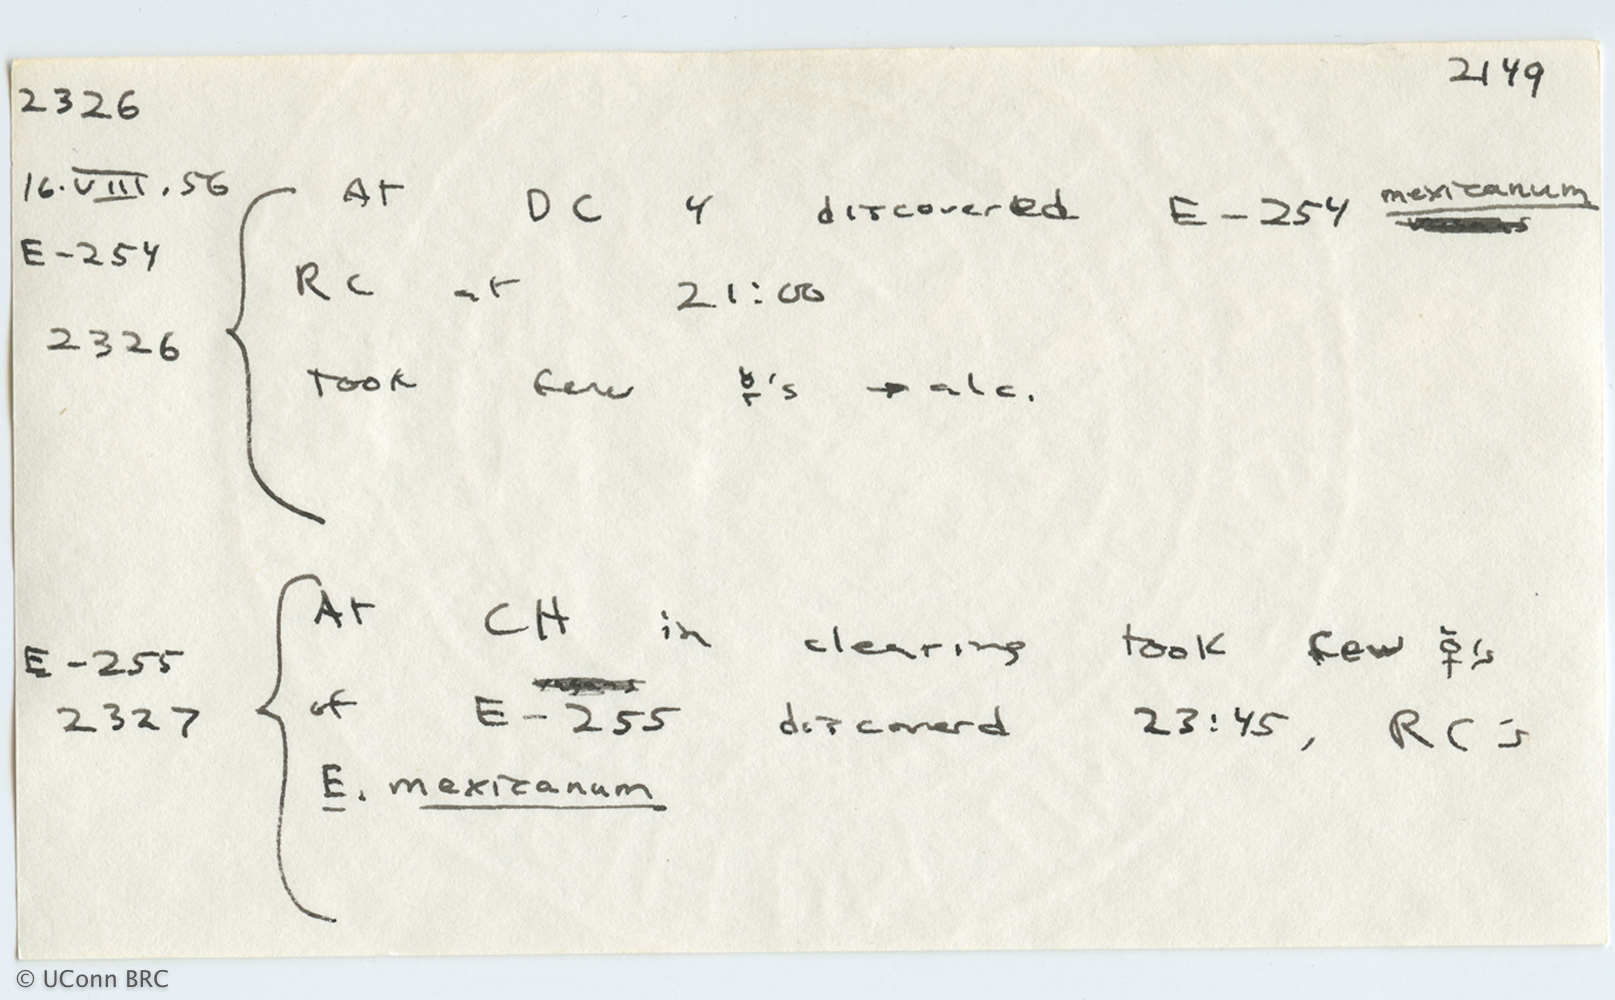 2149
2326
16.VIII.56
E-254
2326
At DC 4 discovered E-254 mexicanum
RC at 21:00
took few ☿'s → alc.
E-255
2327
At CH in clearing took few ☿'s
of E-255 discoverd 23:45, RC's
E. mexicanum
© UConn BRC